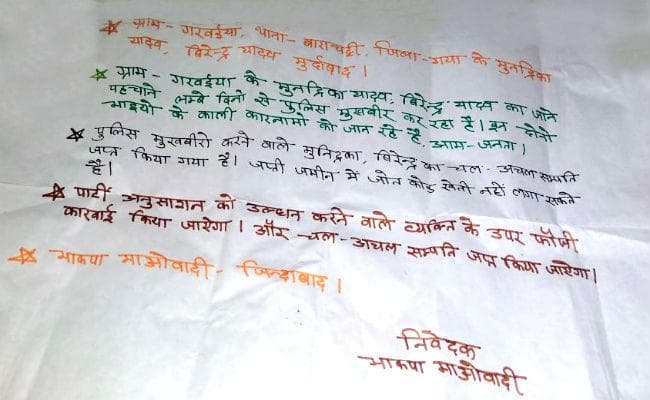 ☆ ग्राम - गरवईया, थाना - बाराचट्टी, जिला - गया के मुनद्रिका
यादव, विरेन्द्र यादव मुर्दाबाद।
☆ ग्राम - गरवईया के मुनद्रिका यादव, विरेन्द्र यादव का जाने
पहचाने लम्बे दिनो से पुलिस मुखबीर कर रहा है। इन दोनो
भाइयो के काली कारनामो को जान रहे है, आम-जनता।
☆ पुलिस मुखबीरो करने वाले मुनिद्रका, विरेन्द्र का चल-अचल सम्पति
जप्त किया गया है। जप्ती जमीन में जोत कोड़ खेती नहीं लगा सकते
है।
☆ पार्टी अनुसाशन को उलंघन करने वाले व्यक्ति के उपर फौजी
कारवाई किया जाऐगा। और चल-अचल सम्पति जप्त किया जाऐगा।
☆ भाकपा माओवादी - जिन्दाबाद।
निवेदक
भाकपा माओवादी